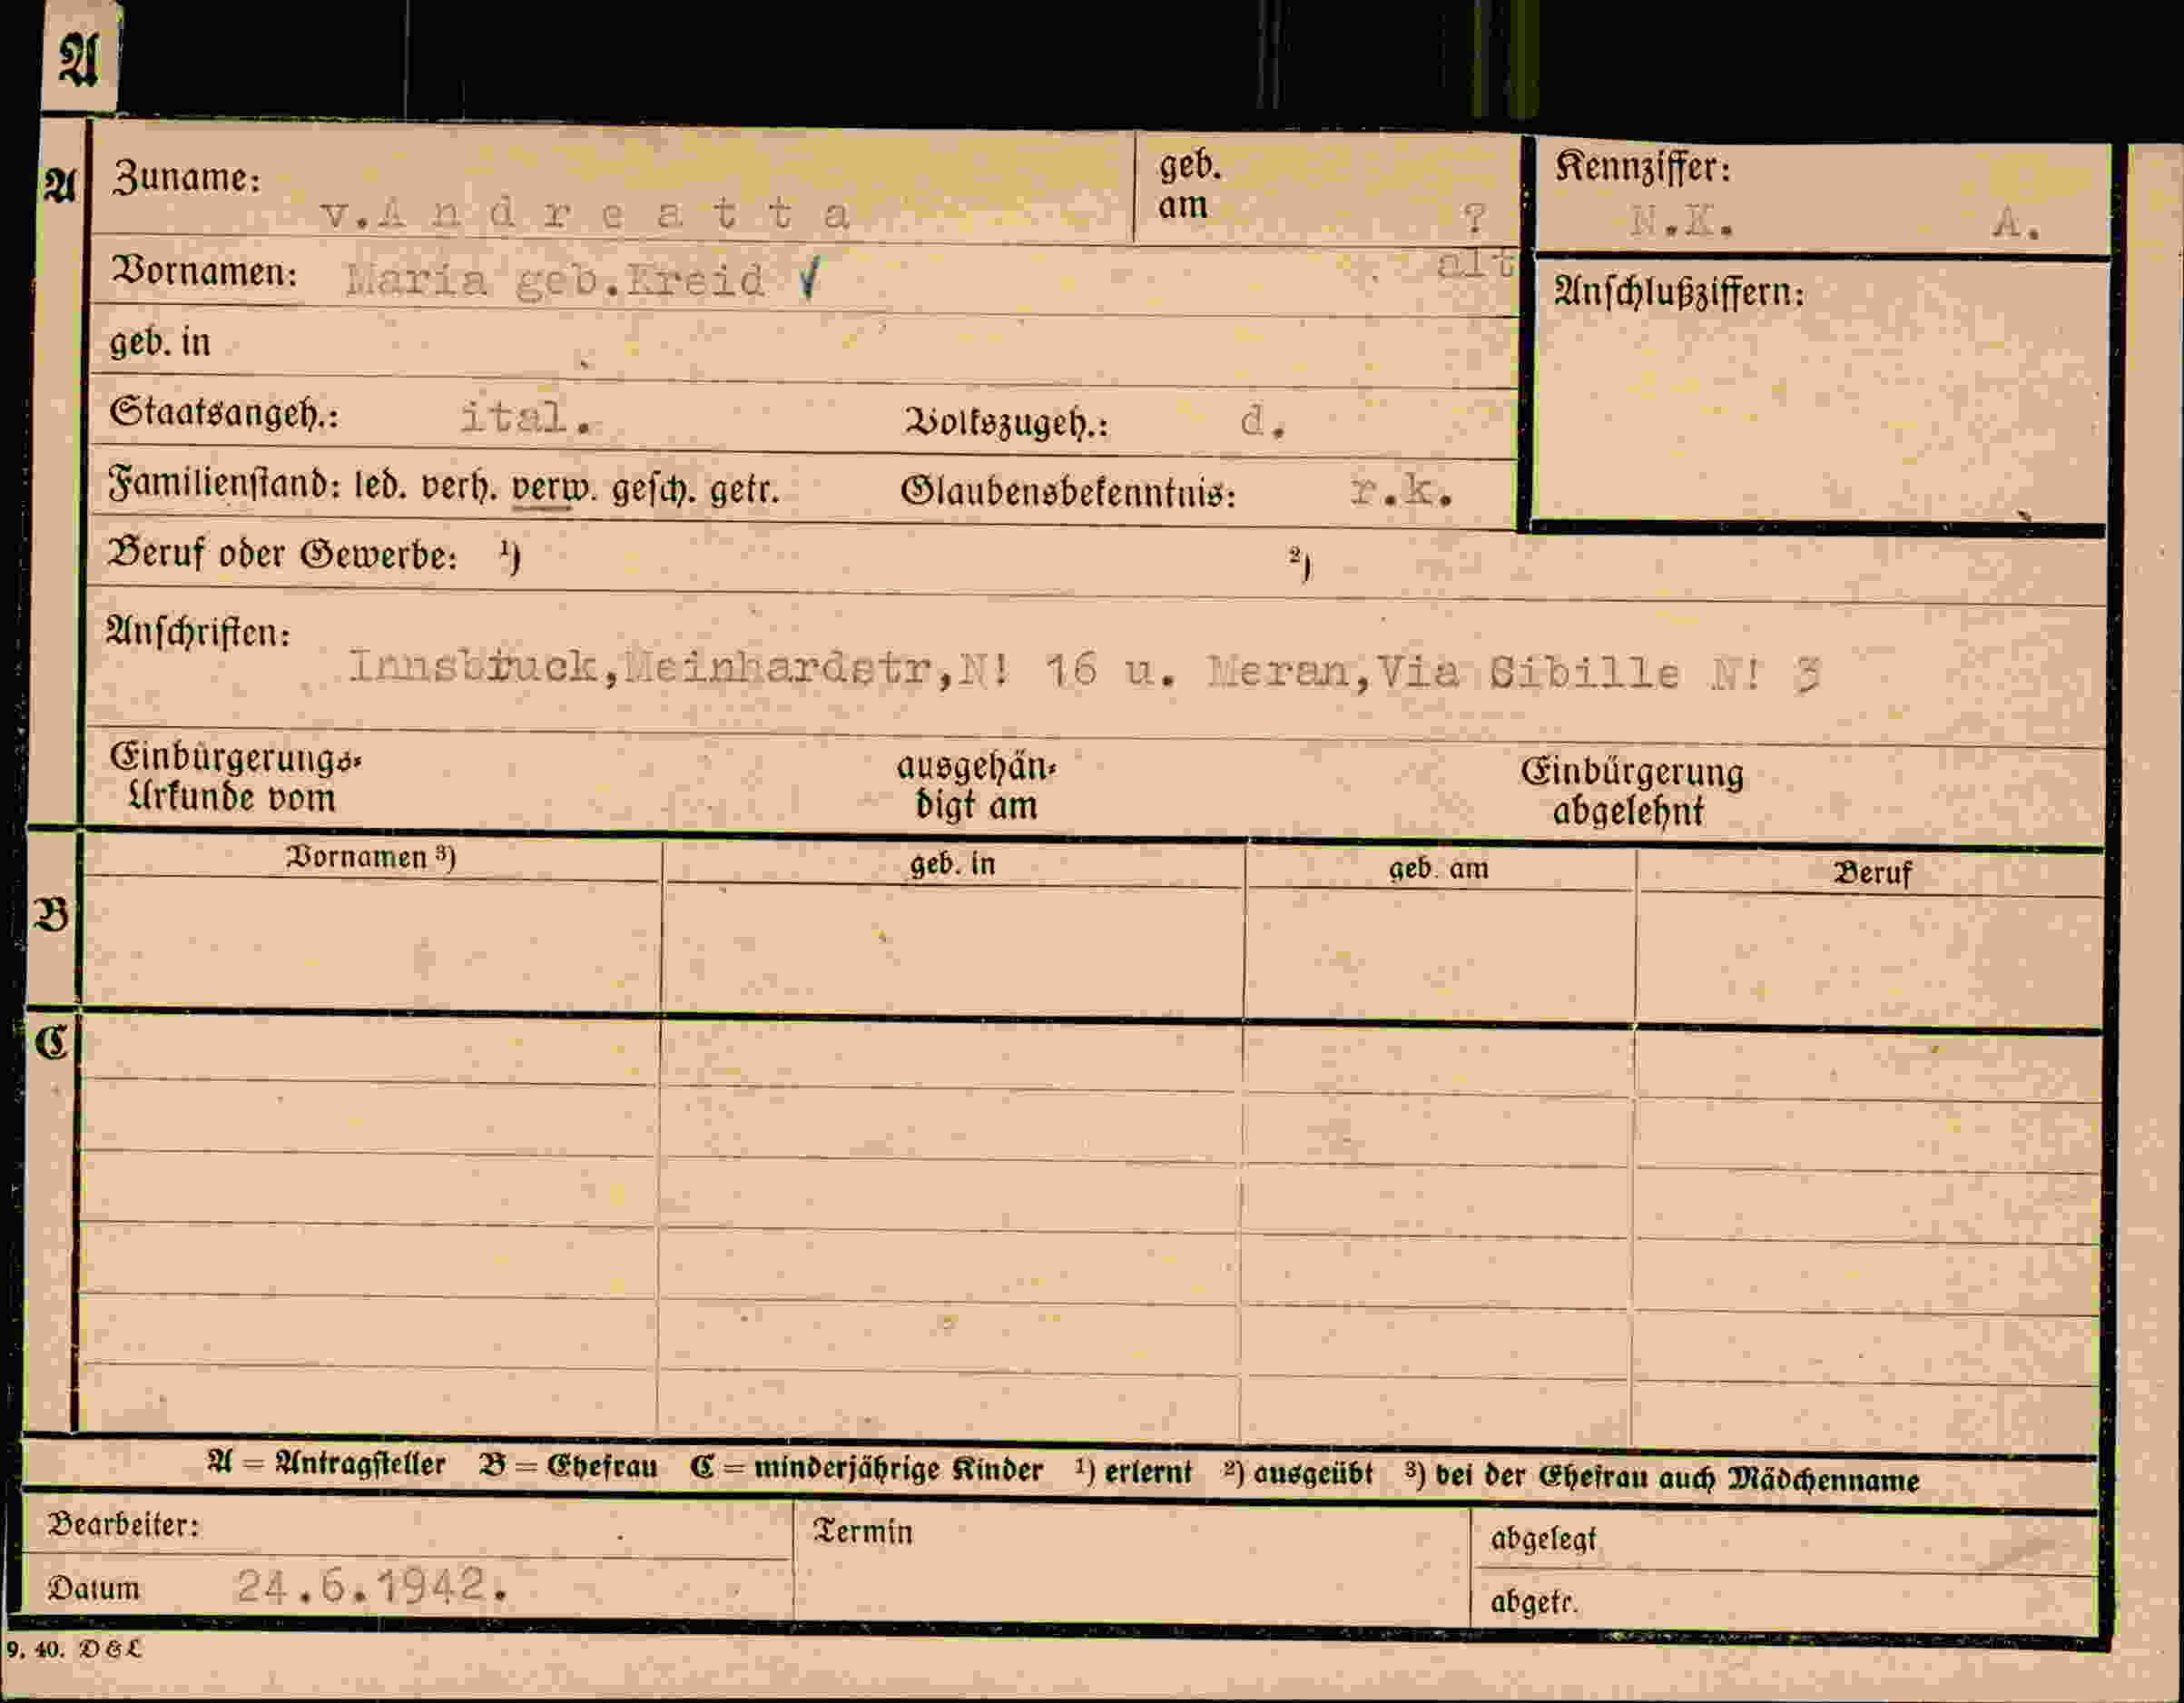 A
A
Zuname:
v.Andreatta
geb.
am
?
Kennziffer:
N.K. A.
Vornamen: Maria geb.Kreid √
alt
Anschlußziffern:
geb. in
Staatsangeh.: ital. Volkszugeh.: d.
Familienstand: led. verh. verw. gesch. getr. Glaubensbekenntnis: r.k.
Beruf oder Gewerbe: ¹) ²)
Anschriften:
Innsbruck,Meinhardstr,N! 16 u. Meran,Via Sibille N! 3
Einbürgerungs-
Urkunde vom
ausgehän-
digt am
Einbürgerung
abgelehnt
Vornamen ³) geb. in geb. am Beruf
B
C
A = Antragsteller B = Ehefrau C = minderjährige Kinder ¹) erlernt ²) ausgeübt ³) bei der Ehefrau auch Mädchenname
Bearbeiter:
Termin
abgelegt
Datum 24.6.1942.
abgetr.
9. 40. D & L